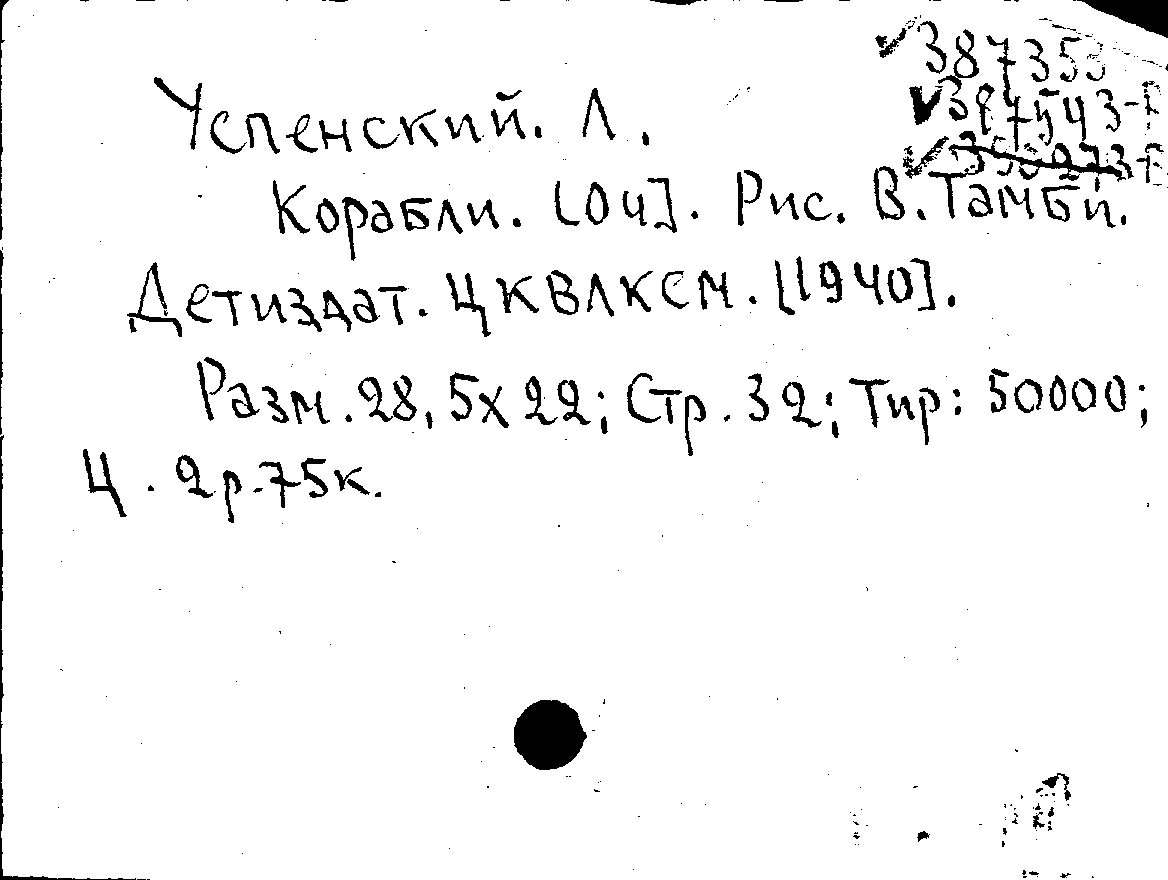 387353
387543-
Успенский. Л.
Корабли. [04]. Рис. В. Тамби.
Детиздат. ЦКВЛКСМ. [1940].
Разм. 28,5х22; Стр. 32; Тир: 50000;
Ц. 2р.75к.